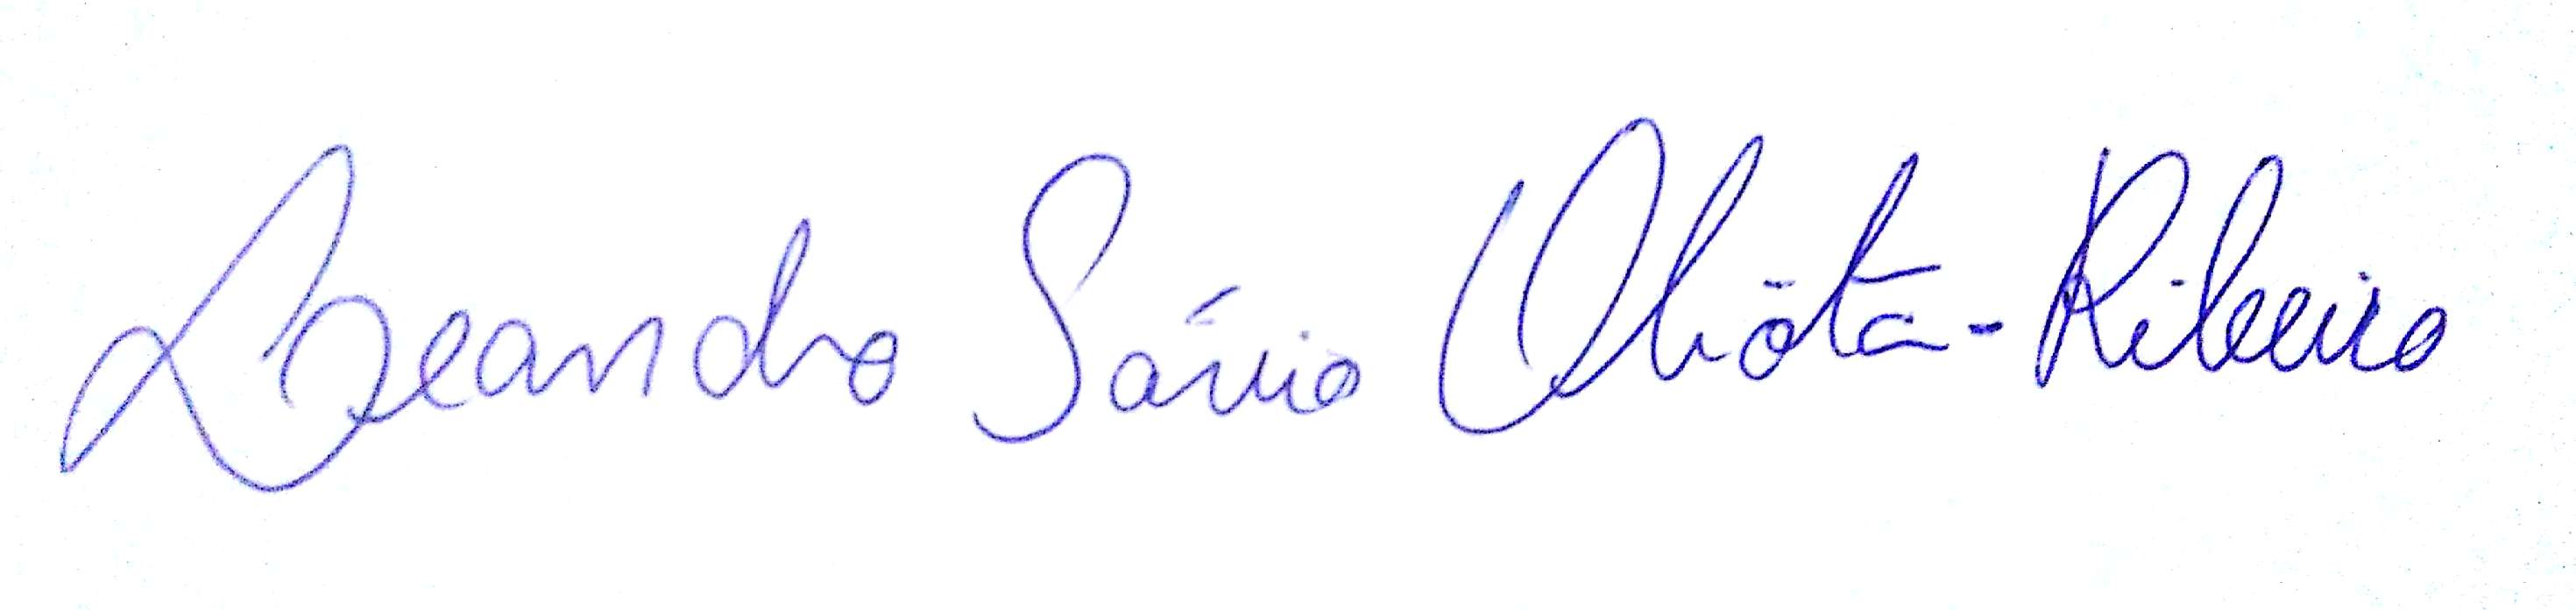 Leandro Sávio Oliöta-Ribeiro